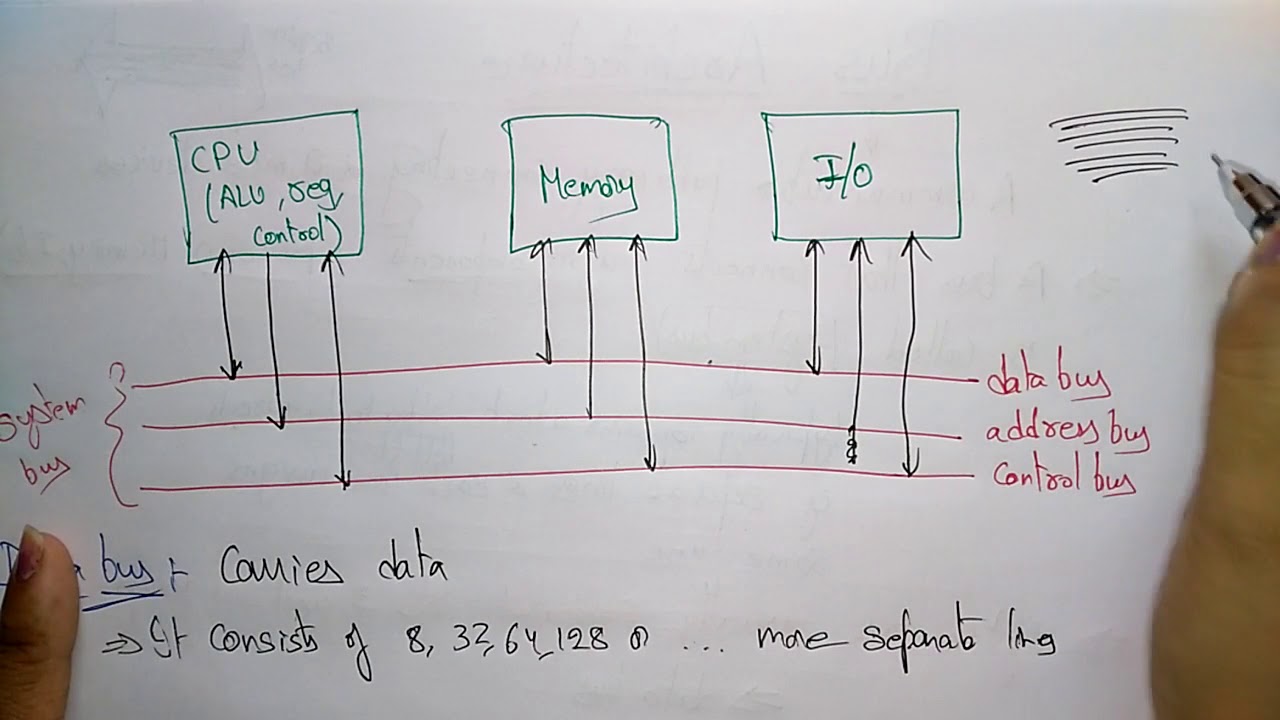 CPU
(ALU, reg,
control)
Memory
I/O
system
bus
data bus
address bus
control bus
bus :- Carries data
⇒ It consists of 8, 32, 64, 128 or ... more separate lins